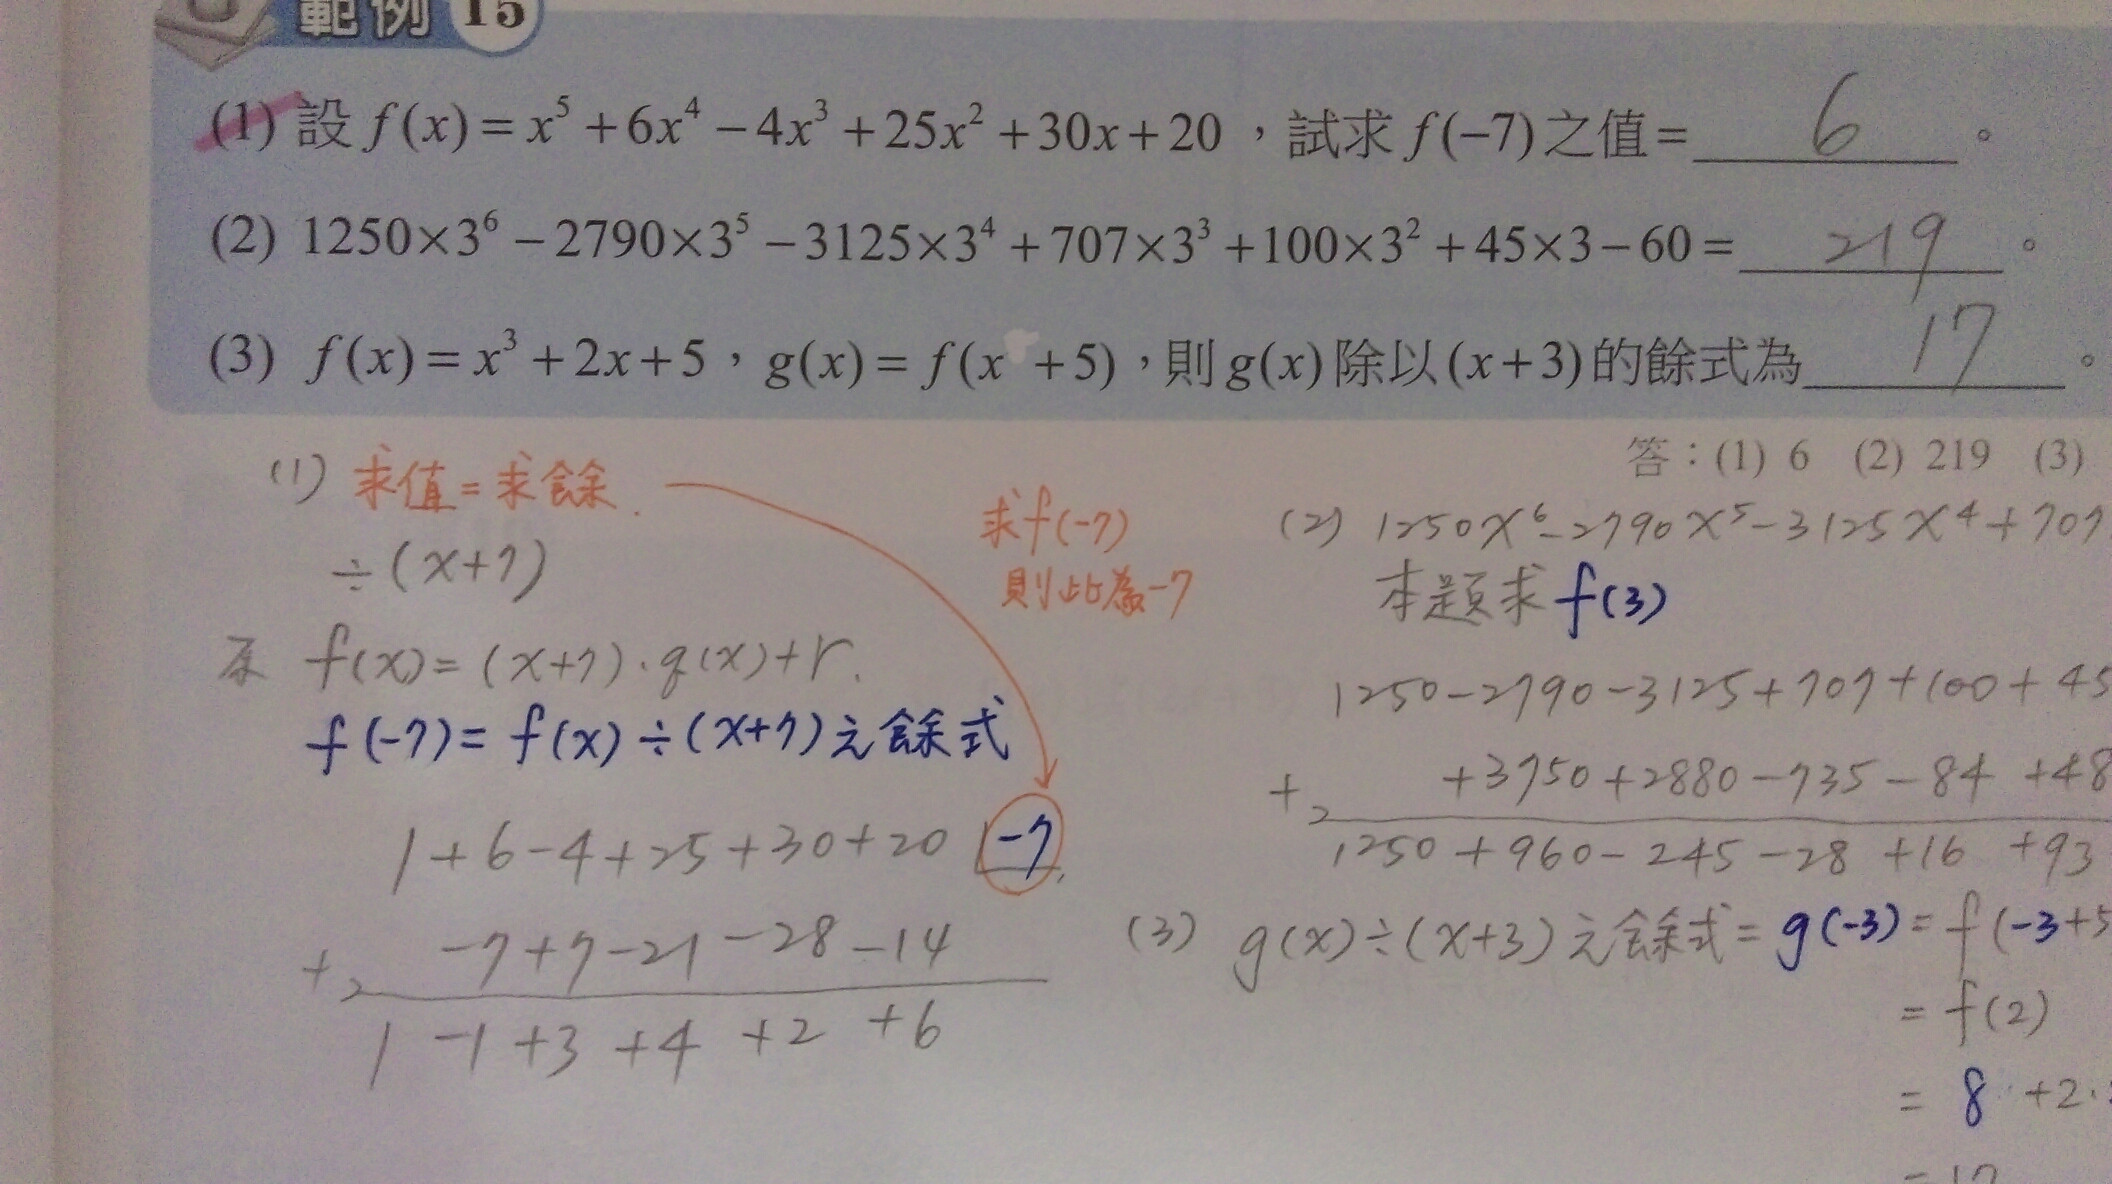 範例 15
(1) 設 f(x) = x⁵ + 6x⁴ − 4x³ + 25x² + 30x + 20 ，試求 f(−7) 之值 = 6 。
(2) 1250×3⁶ − 2790×3⁵ − 3125×3⁴ + 707×3³ + 100×3² + 45×3 − 60 = 219 。
(3) f(x) = x³ + 2x + 5 ， g(x) = f(x +5) ，則 g(x) 除以 (x+3) 的餘式為 17 。
答：(1) 6 (2) 219 (3)
(1) 求值 = 求餘.
÷(x+7)
f(x) = (x+7)·q(x)+r.
f(-7) = f(x) ÷ (x+7) 之餘式
求f(-7)
則此為-7
1+6-4+25+30+20 -7
-7+7-21-28-14
+
1 -1 +3 +4 +2 +6
(2) 1250x⁶-2790x⁵-3125x⁴+707
本題求 f(3)
1250-2790-3125+707+100+45
+3750+2880-735-84 +48
+
1250 +960 -245 -28 +16 +93
(3) g(x)÷(x+3) 之餘式 = g(-3) = f(-3+5
= f(2)
= 8 +2·
= 17